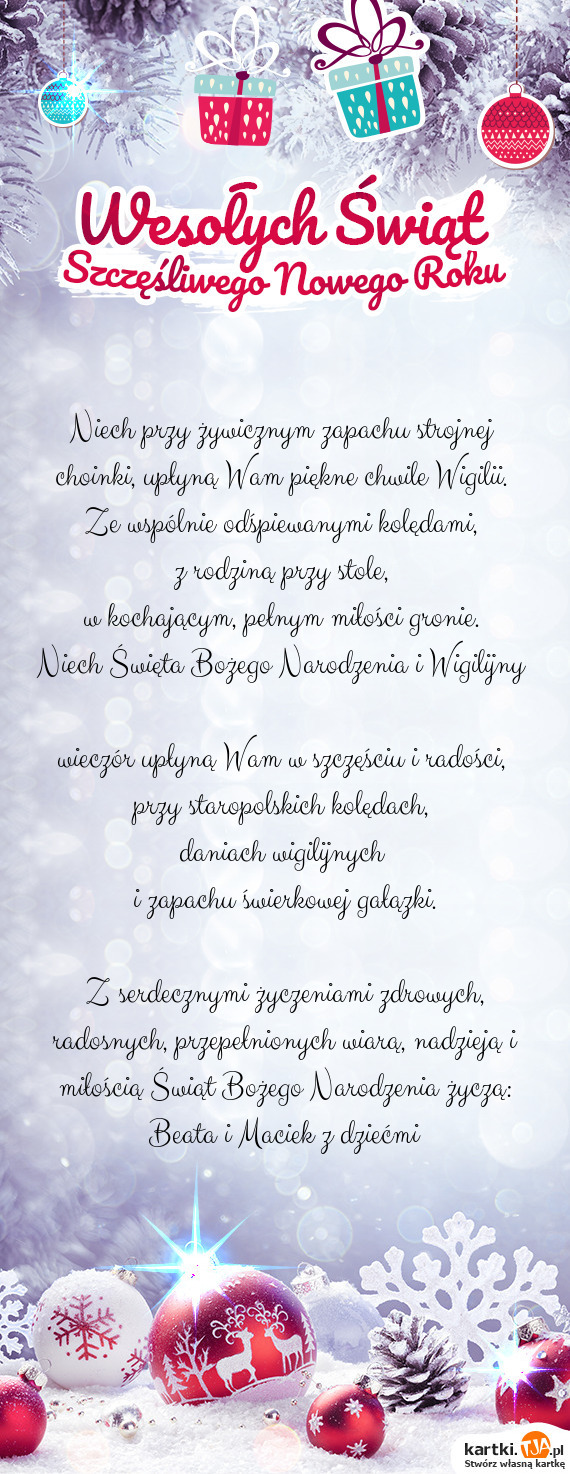 Wesołych Świąt
Szczęśliwego Nowego Roku
Niech przy żywicznym zapachu strojnej
choinki, upłyną Wam piękne chwile Wigilii.
Ze wspólnie odśpiewanymi kolędami,
z rodziną przy stole,
w kochającym, pełnym miłości gronie.
Niech Święta Bożego Narodzenia i Wigilijny
wieczór upłyną Wam w szczęściu i radości,
przy staropolskich kolędach,
daniach wigilijnych
i zapachu świerkowej gałązki.
Z serdecznymi życzeniami zdrowych,
radosnych, przepełnionych wiarą, nadzieją i
miłością Świąt Bożego Narodzenia życzą:
Beata i Maciek z dziećmi
kartki.TJA.pl
Stwórz własną kartkę